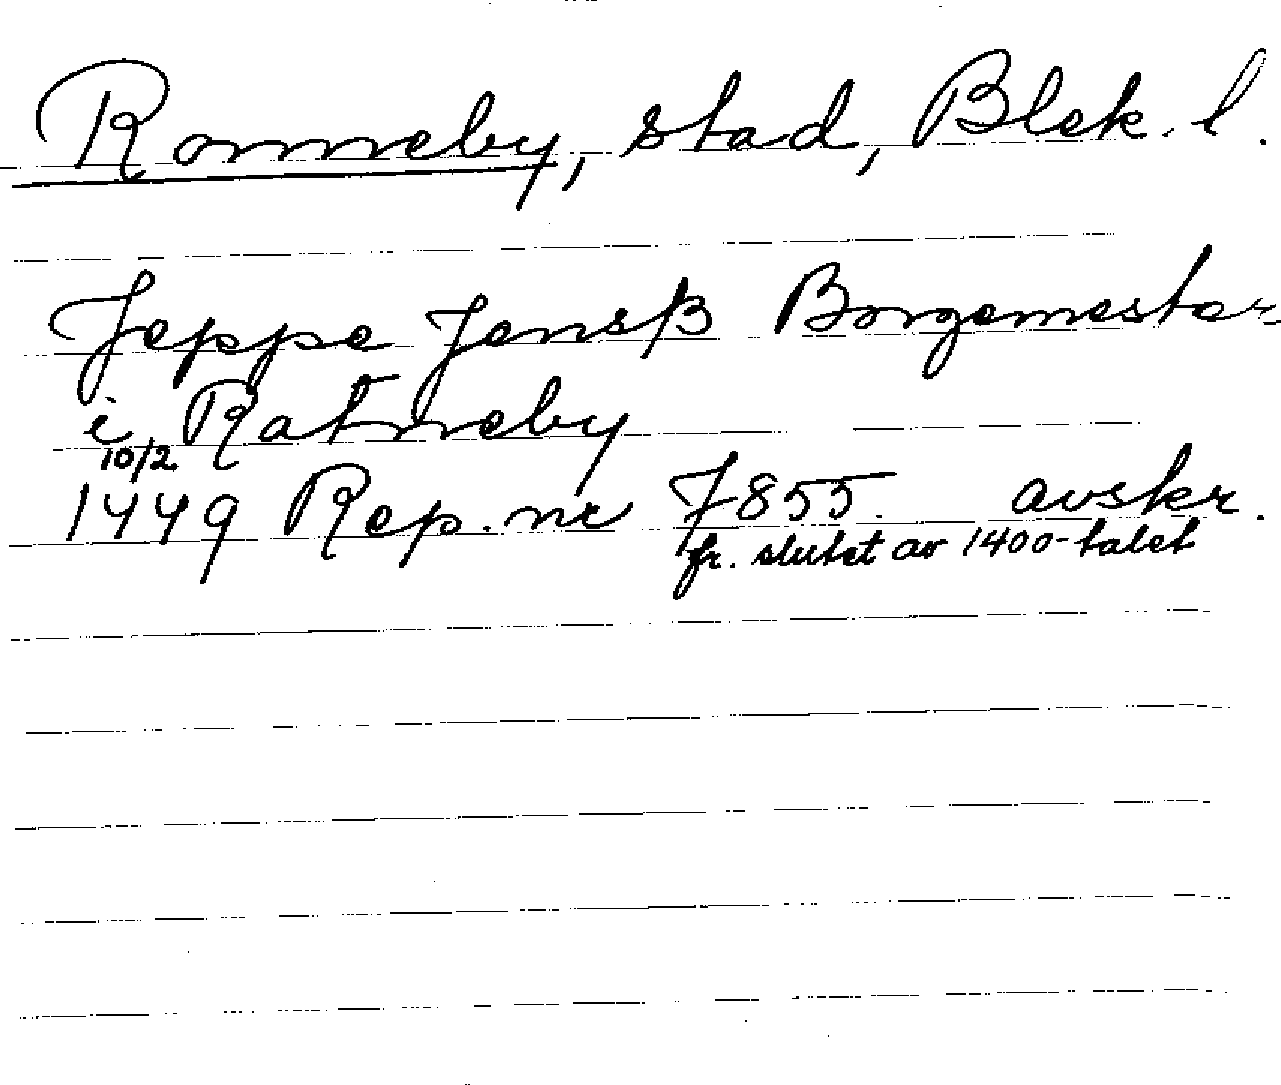 Ronneby, stad, Blek. l.
Jeppe Jensß Borgemester
i Ratneby
10/2
1449 Rep. nr 7855. avskr.
fr. slutet av 1400-talet